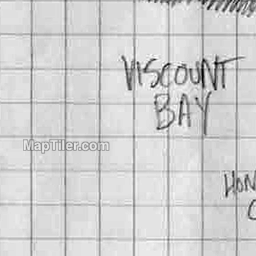 VISCOUNT
BAY
MapTiler.com